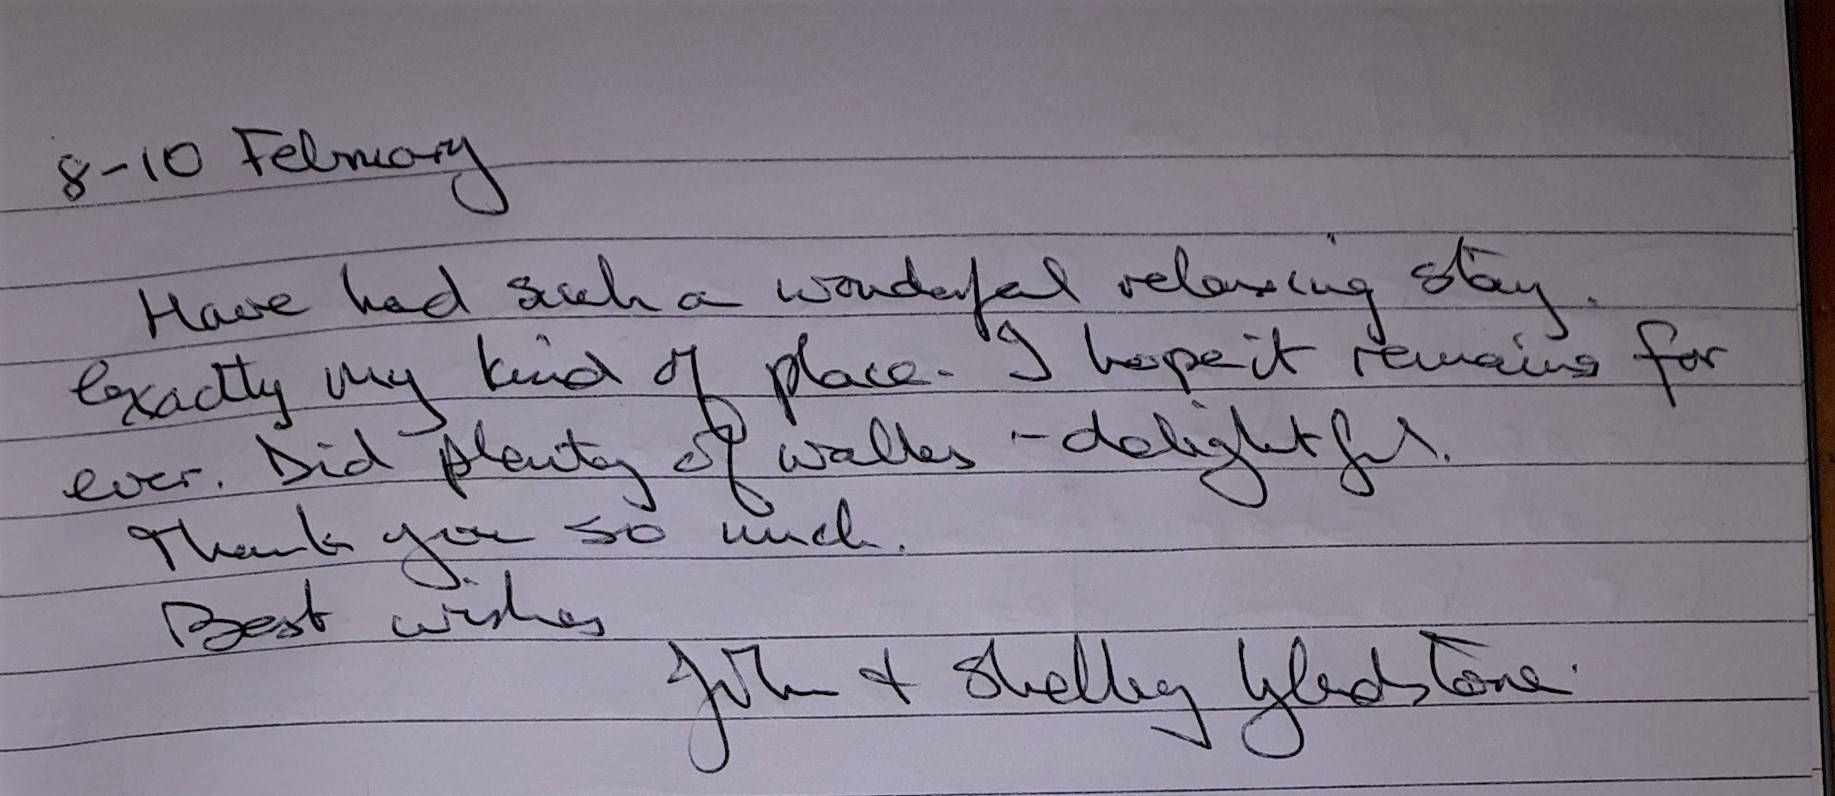 8-10 February
Have had such a wonderful relaxing stay.
Exactly my kind of place. I hope it remains for
ever. Did plenty of walks - delightful.
Thank you so much.
Best wishes
John & Shelley Gladstone.